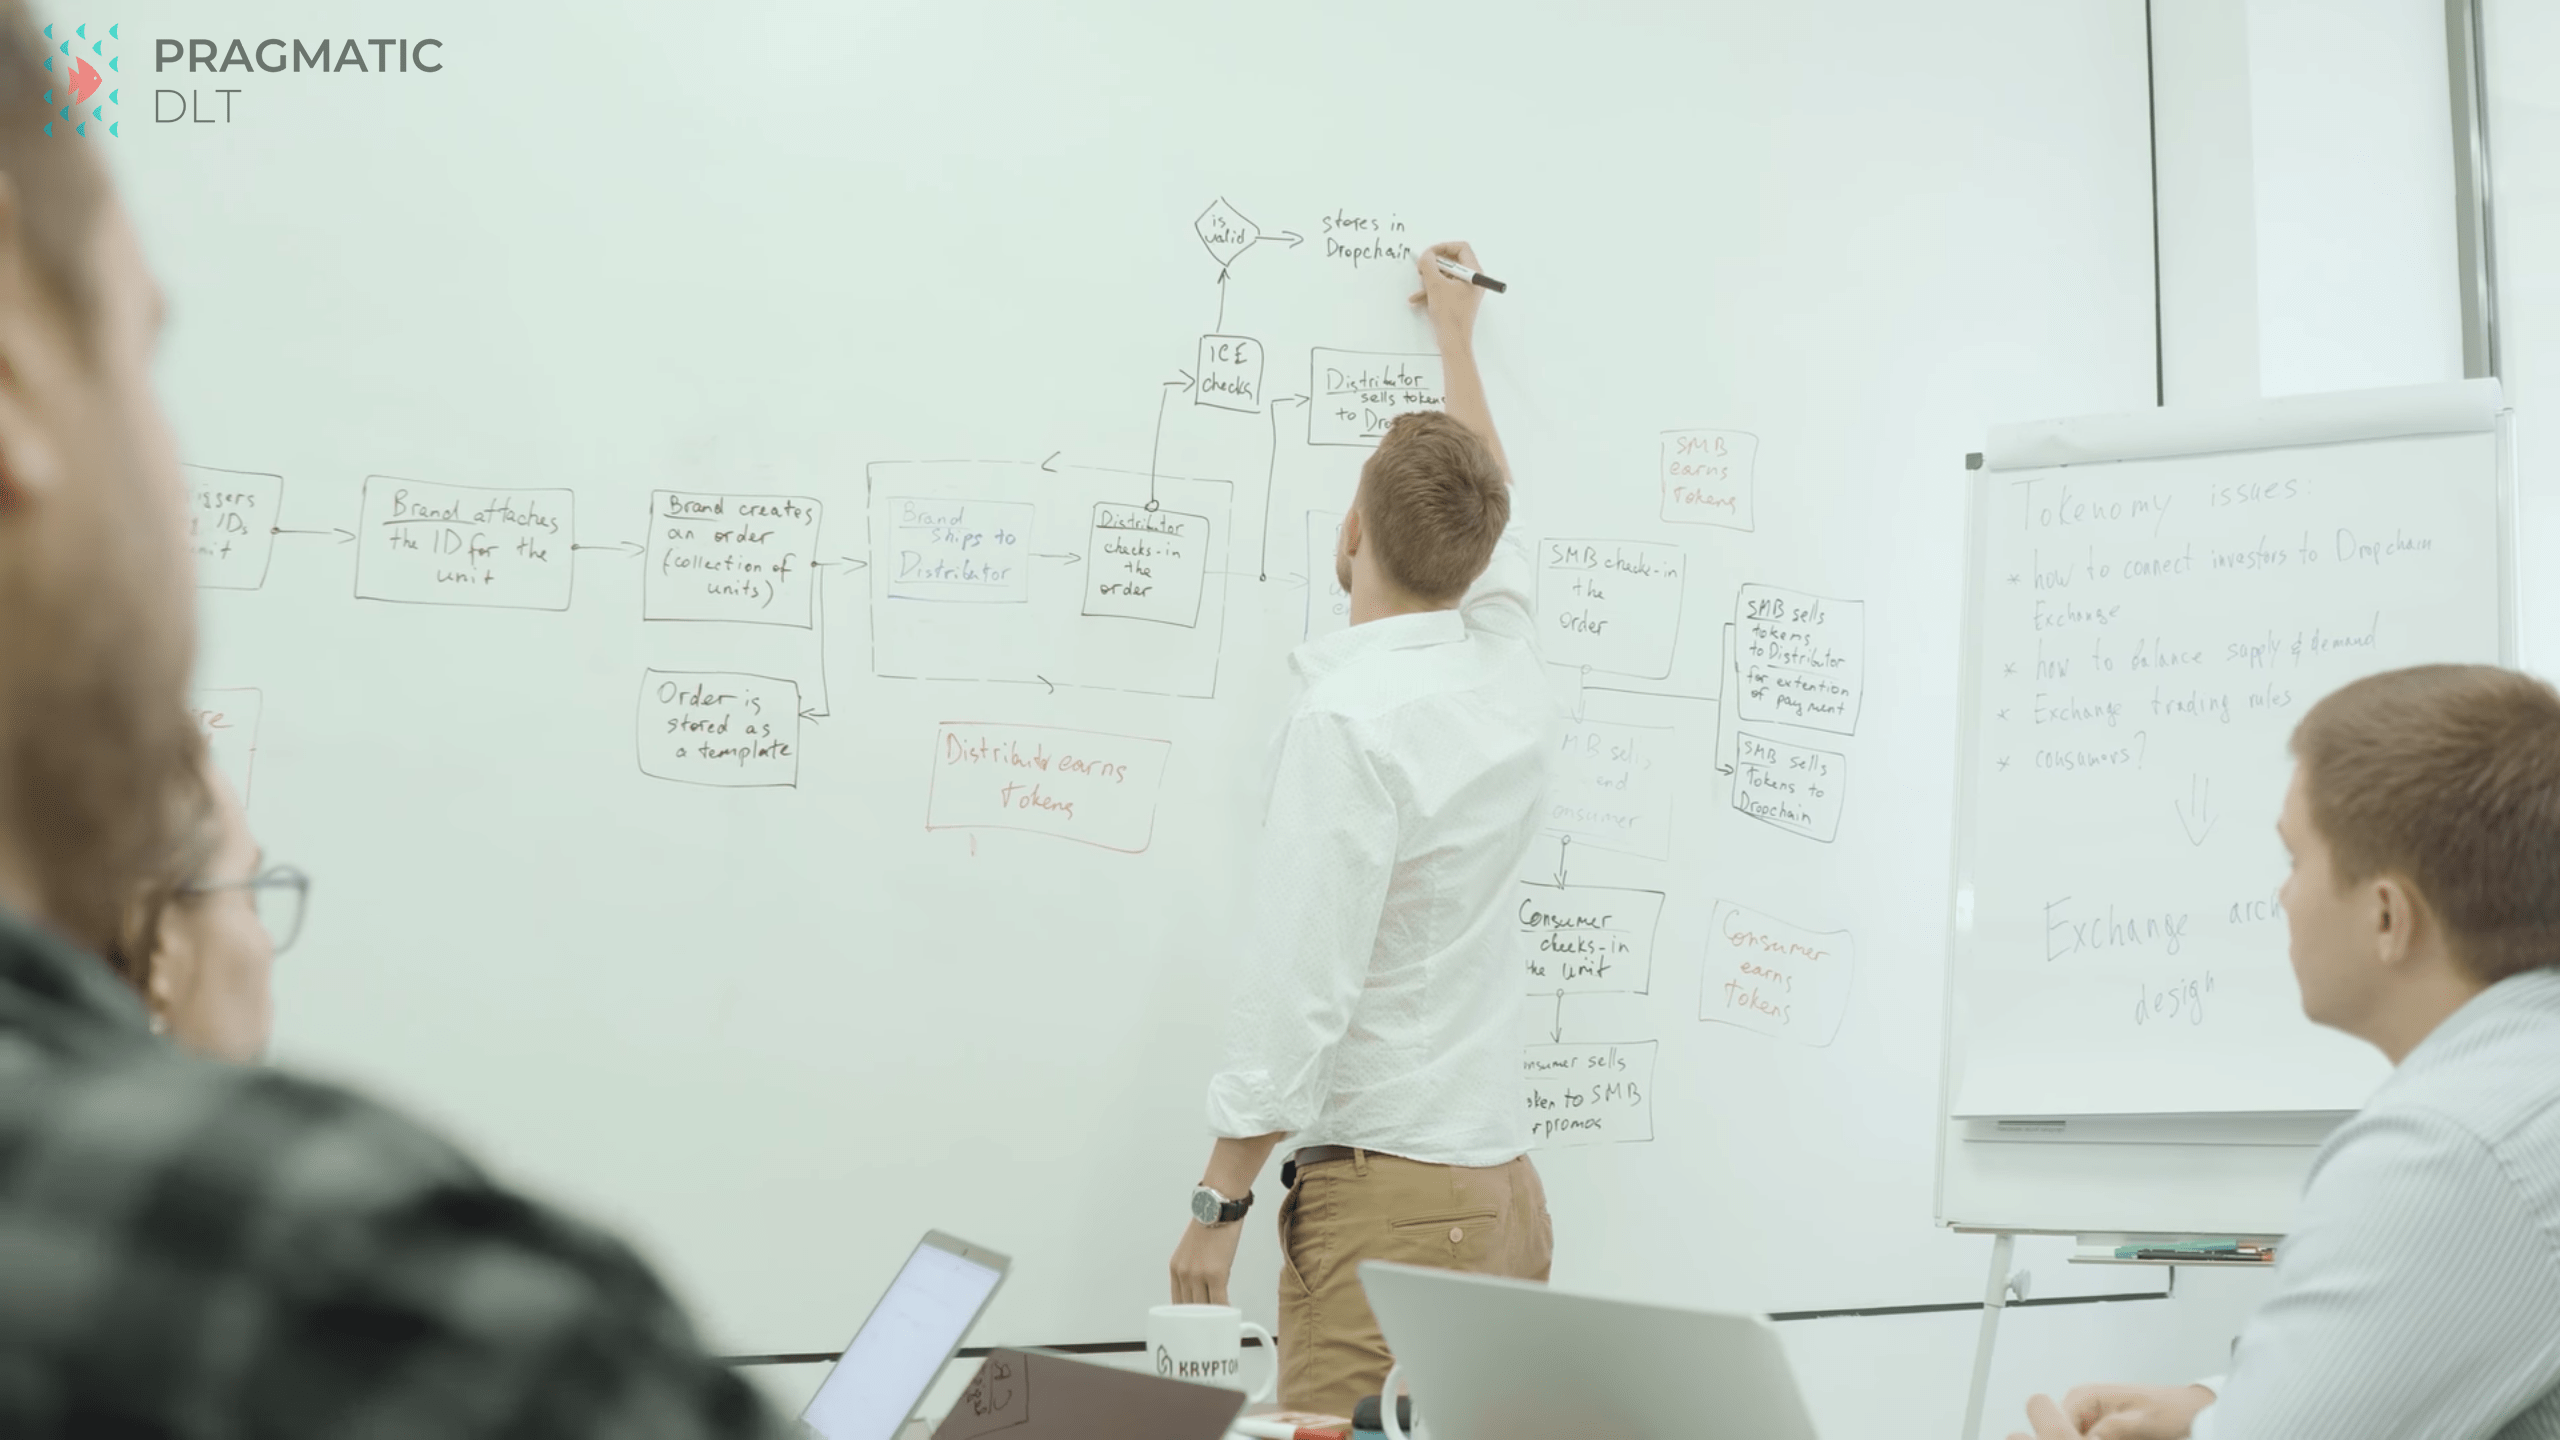 PRAGMATIC
DLT
is
valid
stores in
Dropchain
ICE
checks
Distributor
sells tokens
to
IDs
Brand attaches
the ID for the
unit
Brand creates
an order
(collection of
units)
Order is
stored as
a template
Brand
ships to
Distributor
Distributor
checks-in
the
order
Distributor earns
tokens
SMB
earns
tokens
SMB check-in
the
order
SMB sells
tokens
to Distributor
for extention
of payment
SMB sells
Tokens to
Dropchain
and
Consumer
checks-in
the unit
sells
to SMB
promos
Consumer
earns
tokens
Tokenomy issues:
* how to connect investors to Dropchain
Exchange
* how to balance supply & demand
* Exchange trading rules
* consumors?
Exchange
design
KRYPTON